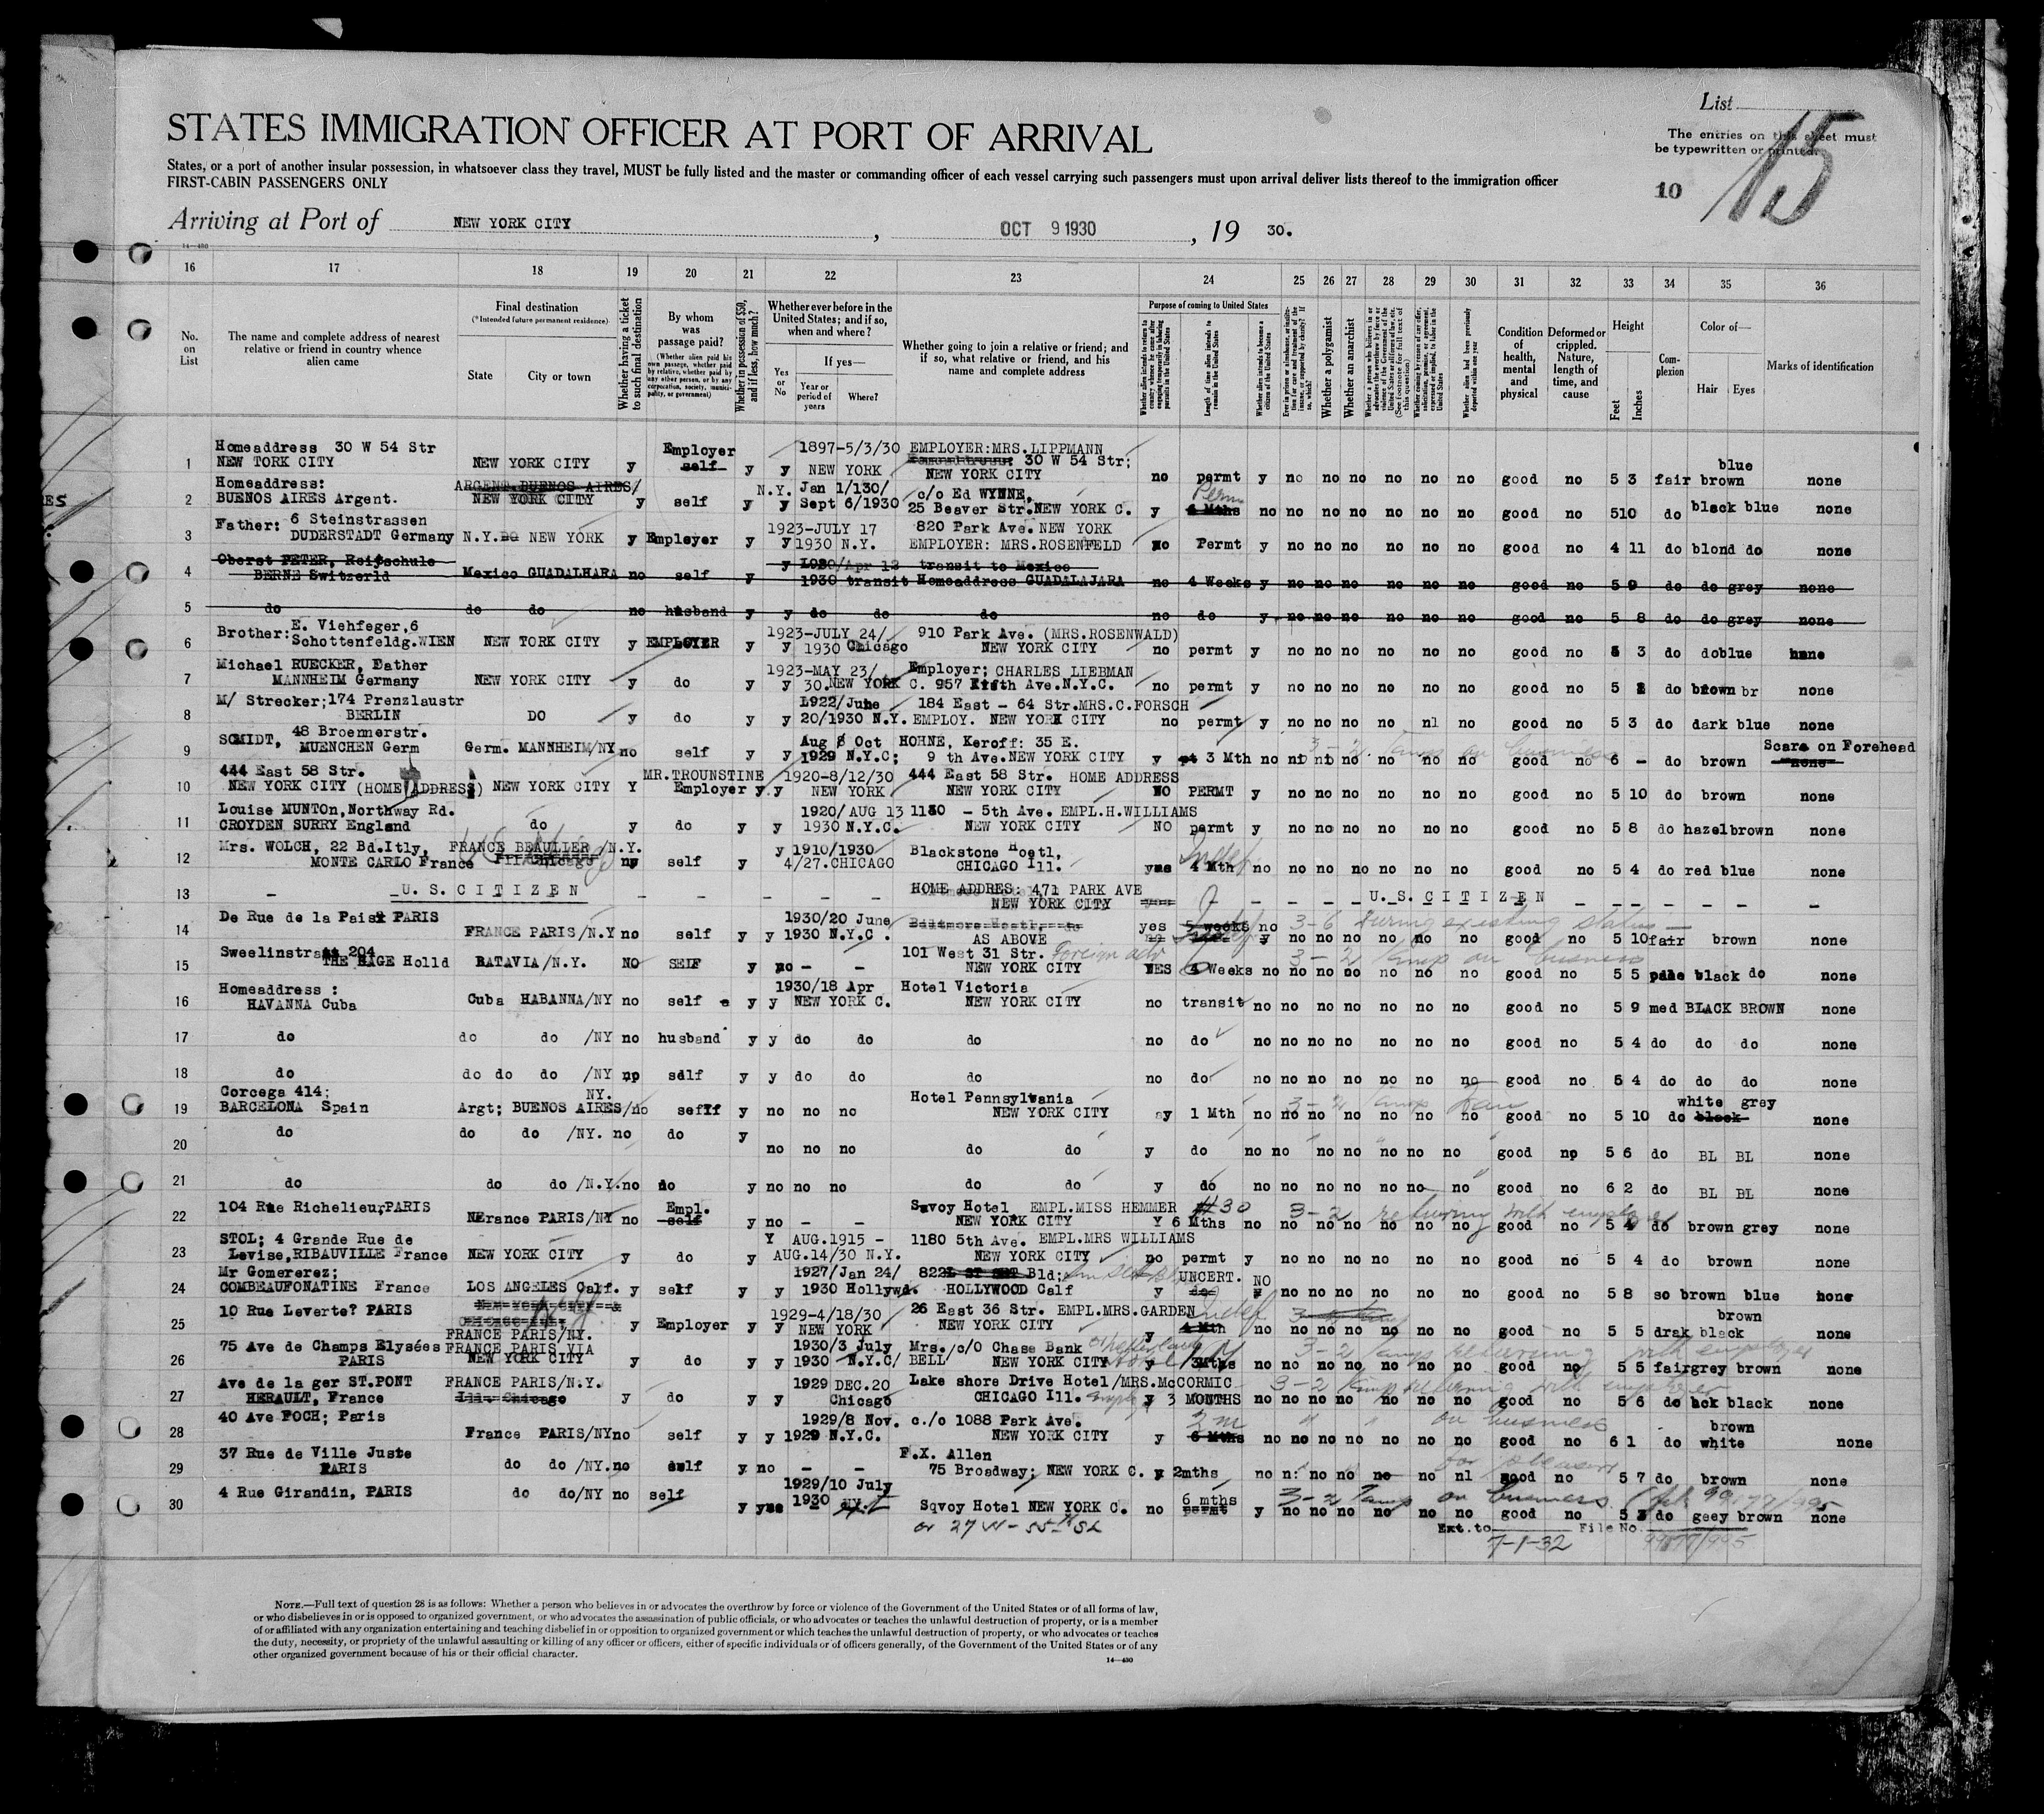 List
15
STATES IMMIGRATION OFFICER AT PORT OF ARRIVAL
The entries on this sheet must
be typewritten or printed.
States, or a port of another insular possession, in whatsoever class they travel, MUST be fully listed and the master or commanding officer of each vessel carrying such passengers must upon arrival deliver lists thereof to the immigration officer
FIRST-CABIN PASSENGERS ONLY
10
Arriving at Port of NEW YORK CITY, OCT 9 1930, 19 30.
14—480
16 17 18 19 20 21 22 23 24 25 26 27 28 29 30 31 32 33 34 35 36
No. on List
The name and complete address of nearest relative or friend in country whence alien came
Final destination
(*Intended future permanent residence)
State City or town
Whether having a ticket to such final destination
By whom was passage paid?
(Whether alien paid his own passage, whether paid by relative, whether paid by any other person, or by any corporation, society, municipality, or government)
Whether in possession of $50, and if less, how much?
Whether ever before in the United States; and if so, when and where?
Yes or No
If yes—
Year or period of years
Where?
Whether going to join a relative or friend; and if so, what relative or friend, and his name and complete address
Purpose of coming to United States
Whether alien intends to return to country whence he came after engaging temporarily in laboring pursuits in the United States
Length of time alien intends to remain in the United States
Whether alien intends to become a citizen of the United States
Whether a polygamist
Whether an anarchist
Whether alien had been previously deported within one year
Condition of health, mental and physical
Deformed or crippled. Nature, length of time, and cause
Height
Feet Inches
Complexion
Color of—
Hair Eyes
Marks of identification
1 Homeaddress 30 W 54 Str
NEW TORK CITY NEW YORK CITY y Employer self y y 1897-5/3/30 NEW YORK EMPLOYER:MRS.LIPPMANN 30 W 54 Str; NEW YORK CITY no permt y no no no no no no good no 5 3 fair brown blue none
2 Homeaddress:
BUENOS AIRES Argent. ARGENT.BUENOS AIRES/ NEW YORK CITY y self y y N.Y. Jan 1/130/ Sept 6/1930 c/o Ed WYNNE, 25 Beaver Str.NEW YORK C. y Perm 4 Mths no no no no no no no good no 510 do black blue none
3 Father: 6 Steinstrassen
DUDERSTADT Germany N.Y. NEW YORK y Employer y y 1923-JULY 17 1930 N.Y. 820 Park Ave. NEW YORK EMPLOYER: MRS.ROSENFELD no Permt y no no no no no no good no 4 11 do blond do none
4 Oberst PETER, Reitschule
BERNE Switzerld Mexico GUADALHARA no self y y 1930/Apr 12 1930 transit transit to Mexico Homeaddress GUADALAJARA no 4 Weeks y no no no no no no good no 5 9 do do grey none
5 do do do no husband y y do do do no do y no no no no no no good no 5 8 do do grey none
6 Brother: E. Viehfeger,6
Schottenfeldg.WIEN NEW TORK CITY y EMPLOYER y y 1923-JULY 24/ 1930 Chicago 910 Park Ave. (MRS.ROSENWALD) NEW YORK CITY no permt y no no no no no no good no 5 3 do do blue none
7 Michael RUECKER, Father
MANNHEIM Germany NEW YORK CITY y do y y 1923-MAY 23/ 30.NEW YORK C. Employer; CHARLES LIEBMAN 957 Fifth Ave.N.Y.C. no permt y no no no no no no good no 5 do brown br none
8 M/ Strecker;174 Prenzlaustr
BERLIN DO y do y y 1922/June 20/1930 N.Y. 184 East - 64 Str.MRS.C.FORSCH EMPLOY. NEW YORK CITY no permt y no no no no nl no good no 5 3 do dark blue none
9 SCMIDT, 48 Broennerstr.
MUENCHEN Germ Germ. MANNHEIM/NY no self y y Aug Oct 1929 N.Y.C; HOHNE, Keroff: 35 E. 9 th Ave.NEW YORK CITY y 3 Mth no 3-2 Temp on business good no 6 - do brown Scars on Forehead none
10 444 East 58 Str.
NEW YORK CITY (HOME ADDRESS) NEW YORK CITY Y MR.TROUNSTINE Employer y y 1920-8/12/30 NEW YORK 444 East 58 Str. HOME ADDRESS NEW YORK CITY NO PERMT y no no no no no no good no 5 10 do brown none
11 Louise MUNTOn,Northway Rd.
CROYDEN SURRY England do y do y y 1920/AUG 13 1930 N.Y.C. 1180 - 5th Ave. EMPL.H.WILLIAMS NEW YORK CITY NO permt y no no no no no no good no 5 8 do hazel brown none
12 Mrs. WOLCH, 22 Bd.Itly,
MONTE CARLO France FRANCE BEAULIER /N.Y. self y y 1910/1930 4/27.CHICAGO Blackstone Hoetl, CHICAGO Ill. Indef 4 Mth no no no no no no no good no 5 4 do red blue none
13 - U. S. C I T I Z E N - - - - - - HOME ADDRES: 471 PARK AVE NEW YORK CITY - - U. S. C I T I Z E N - - - -
14 De Rue de la Paix PARIS
FRANCE PARIS/N.Y no self y y 1930/20 June 1930 N.Y.C. AS ABOVE yes 5 weeks no 3-6 During existing status no no no no no no good no 5 10 fair brown none
15 Sweelinstraat 204
THE HAGE Holld BATAVIA/N.Y. NO SElF y no - - 101 West 31 Str. NEW YORK CITY Foreign YES 4 Weeks no 3-2 Temp on business no no no no no no good no 5 5 pale black do none
16 Homeaddress :
HAVANNA Cuba Cuba HABANNA/NY no self y y 1930/18 Apr NEW YORK C. Hotel Victoria NEW YORK CITY no transit no no no no no no no good no 5 9 med BLACK BROWN none
17 do do do /NY no husband y y do do do no do no no no no no no no good no 5 4 do do do none
18 do do do do /NY self y y do do do no do no no no no no no no good no 5 4 do do do none
19 Corcega 414;
BARCELONA Spain Argt; BUENOS AIRES/ NY. no self y no no no Hotel Pennsylvania NEW YORK CITY y 1 Mth no 3-2 Temp no no no no no no good no 5 10 do white grey black none
20 do do do /NY. no do y no no no do do y do no no no no no no no good no 5 6 do BL BL none
21 do do do /N.Y. no do y no no no do do y do no no no no no no no good no 6 2 do BL BL none
22 104 Rue Richelieu,PARIS France PARIS/NY no Empl. self y no - - Savoy Hotel, EMPL.MISS HEMMER NEW YORK CITY Y 6 Mths no 3-2 returning with employer no no no no no no good no 5 do brown grey none
23 STOL; 4 Grande Rue de
Levise,RIBAUVILLE France NEW YORK CITY y do Y AUG.1915 - AUG.14/30 N.Y. 1180 5th Ave. EMPL.MRS WILLIAMS NEW YORK CITY no permt y no no no no no no good no 5 4 do brown none
24 Mr Gomererez;
COMBEAUFONATINE France LOS ANGELES Calf. y self y y 1927/Jan 24/ 1930 Hollywd. 822 Bld; HOLLYWOOD Calf y UNCERT. NO no no no no no no good no 5 8 so brown blue none
25 10 Rue Leverte? PARIS FRANCE PARIS/NY. y Employer y y 1929-4/18/30 NEW YORK 26 East 36 Str. EMPL.MRS.GARDEN NEW YORK CITY y Indef 4 Mth no no no no no no no good no 5 5 drak black brown none
26 75 Ave de Champs Elysées
PARIS FRANCE PARIS VIA NEW YORK CITY y do y y 1930/3 July 1930 N.Y.C/ Mrs./c/O Chase Bank BELL NEW YORK CITY 3Mths no 3-2 Temp returning with employer no no no no no no good no 5 5 fair grey brown none
27 Ave de la ger ST.PONT
HERAULT, France FRANCE PARIS/N.Y. Ill. Chicago y do y y 1929 DEC.20 Chicago Lake shore Drive Hotel/MRS.McCORMIC CHICAGO Ill. y 3 MONTHS no 3-2 Temp returning with employer no no no no no no good no 5 6 do black none
28 40 Ave FOCH; Paris France PARIS/NY no self y y 1929/8 Nov. 1929 N.Y.C. c./o 1088 Park Ave. NEW YORK CITY y 2 m 6 Mths no " " on business no no no no no no good no 6 1 do white brown none
29 37 Rue de Ville Juste
PARIS do do /NY. no self y no - - F.X. Allen 75 Broadway; NEW YORK C. y 2mths no for pleasure no no no no nl good no 5 7 do brown none
30 4 Rue Girandin, PARIS do do/NY no self y yes 1929/10 July 1930 Sqvoy Hotel NEW YORK C. no 6 mths permt y 3-2 Temp on business no no no no no no good no 5 do geey brown none
or 27 W - 55th St
Ext. to 7-1-32 File No. 99577/995
NOTE.—Full text of question 28 is as follows: Whether a person who believes in or advocates the overthrow by force or violence of the Government of the United States or of all forms of law,
or who disbelieves in or is opposed to organized government, or who advocates the assassination of public officials, or who advocates or teaches the unlawful destruction of property, or is a member
of or affiliated with any organization entertaining and teaching disbelief in or opposition to organized government or which teaches the unlawful destruction of property, or who advocates or teaches
the duty, necessity, or propriety of the unlawful assaulting or killing of any officer or officers, either of specific individuals or of officers generally, of the Government of the United States or of any
other organized government because of his or their official character.
14—480